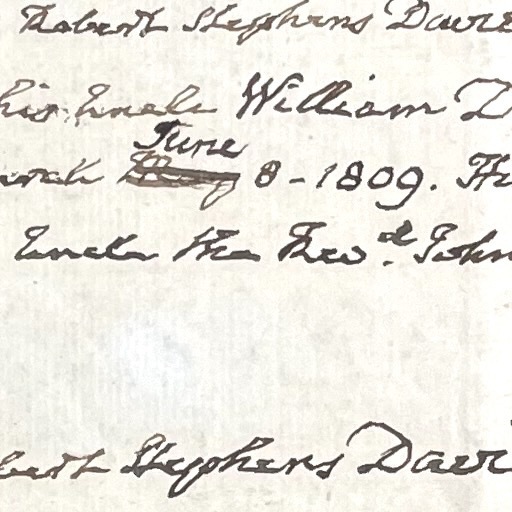 Robert Stephens Davie
his Uncle William D
June
8 - 1809. The
Uncle the Revd. John
Stephens Davi